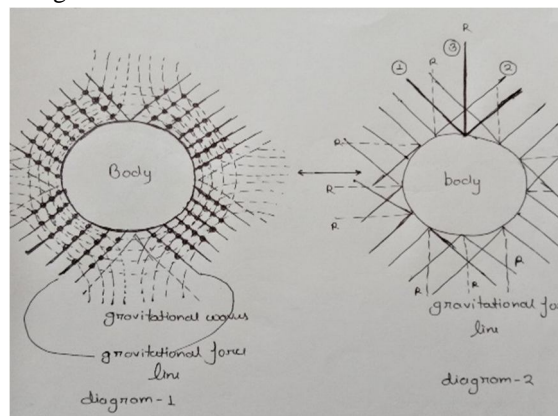 Body
gravitational waves
gravitational force
line
diagram-1
R
③
R
①
②
R
R
R
body
R
R
R
gravitational fo
line
diagram-2